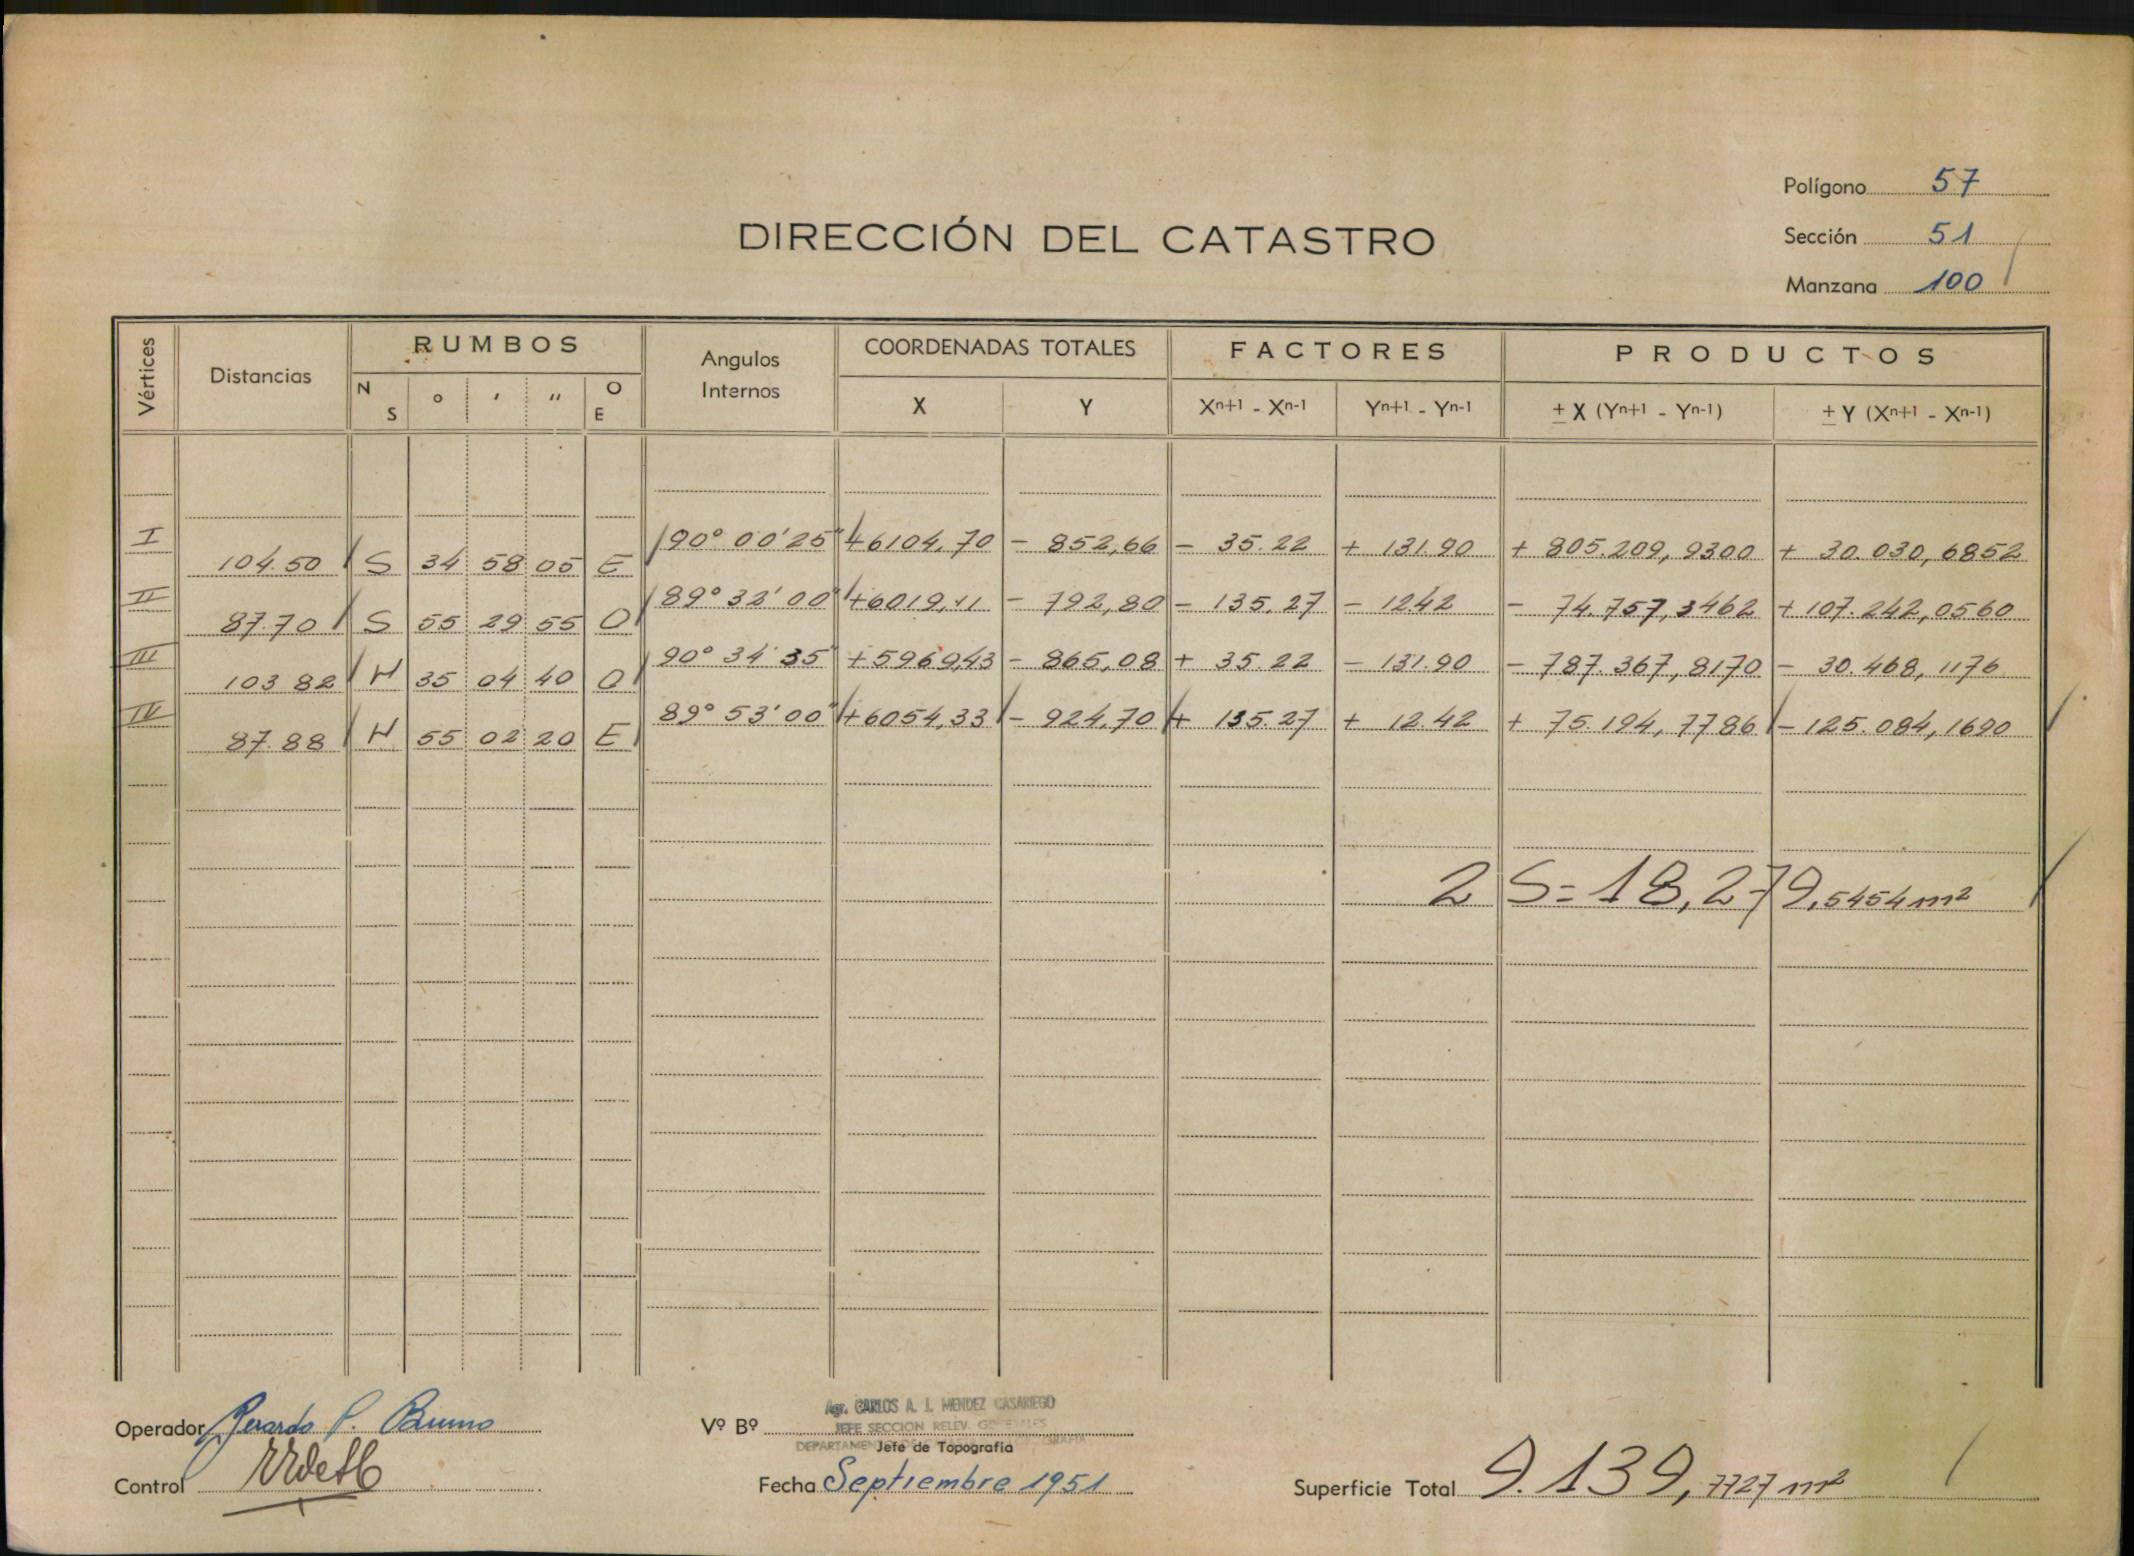 Polígono 57
DIRECCIÓN DEL CATASTRO
Sección 51
Manzana 100
Vértices Distancias RUMBOS Angulos Internos COORDENADAS TOTALES FACTORES PRODUCTOS
N S ° ' '' O E X Y Xⁿ⁺¹ - Xⁿ⁻¹ Yⁿ⁺¹ - Yⁿ⁻¹ ± X (Yⁿ⁺¹ - Yⁿ⁻¹) ± Y (Xⁿ⁺¹ - Xⁿ⁻¹)
I 90° 00' 25" +6104,70 - 852,66 - 35.22 + 131.90 + 805.209,9300 + 30.030,6852
104.50 S 34 58 05 E
II 89° 32' 00" +6019,11 - 792,80 - 135.27 - 12.42 - 74.757,3462 + 107.242,0560
87.70 S 55 29 55 O
III 90° 34' 35" +5969,43 - 865,08 + 35.22 - 131.90 - 787.367,8170 - 30.468,1176
103 82 N 35 04 40 O
IV 89° 53' 00" +6054,33 - 924,70 + 135.27 + 12.42 + 75.194,7786 - 125.084,1690
87.88 N 55 02 20 E
2 S = 18,279,5454 m²
Operador Gerardo P. Bruno Vº Bº Agr. CARLOS A. J. MENDEZ CASARIEGO
JEFE SECCION RELEV.
DEPARTAMENTO
Jefe de Topografía
Control Fecha Septiembre 1951 Superficie Total 9.139,7727 m²